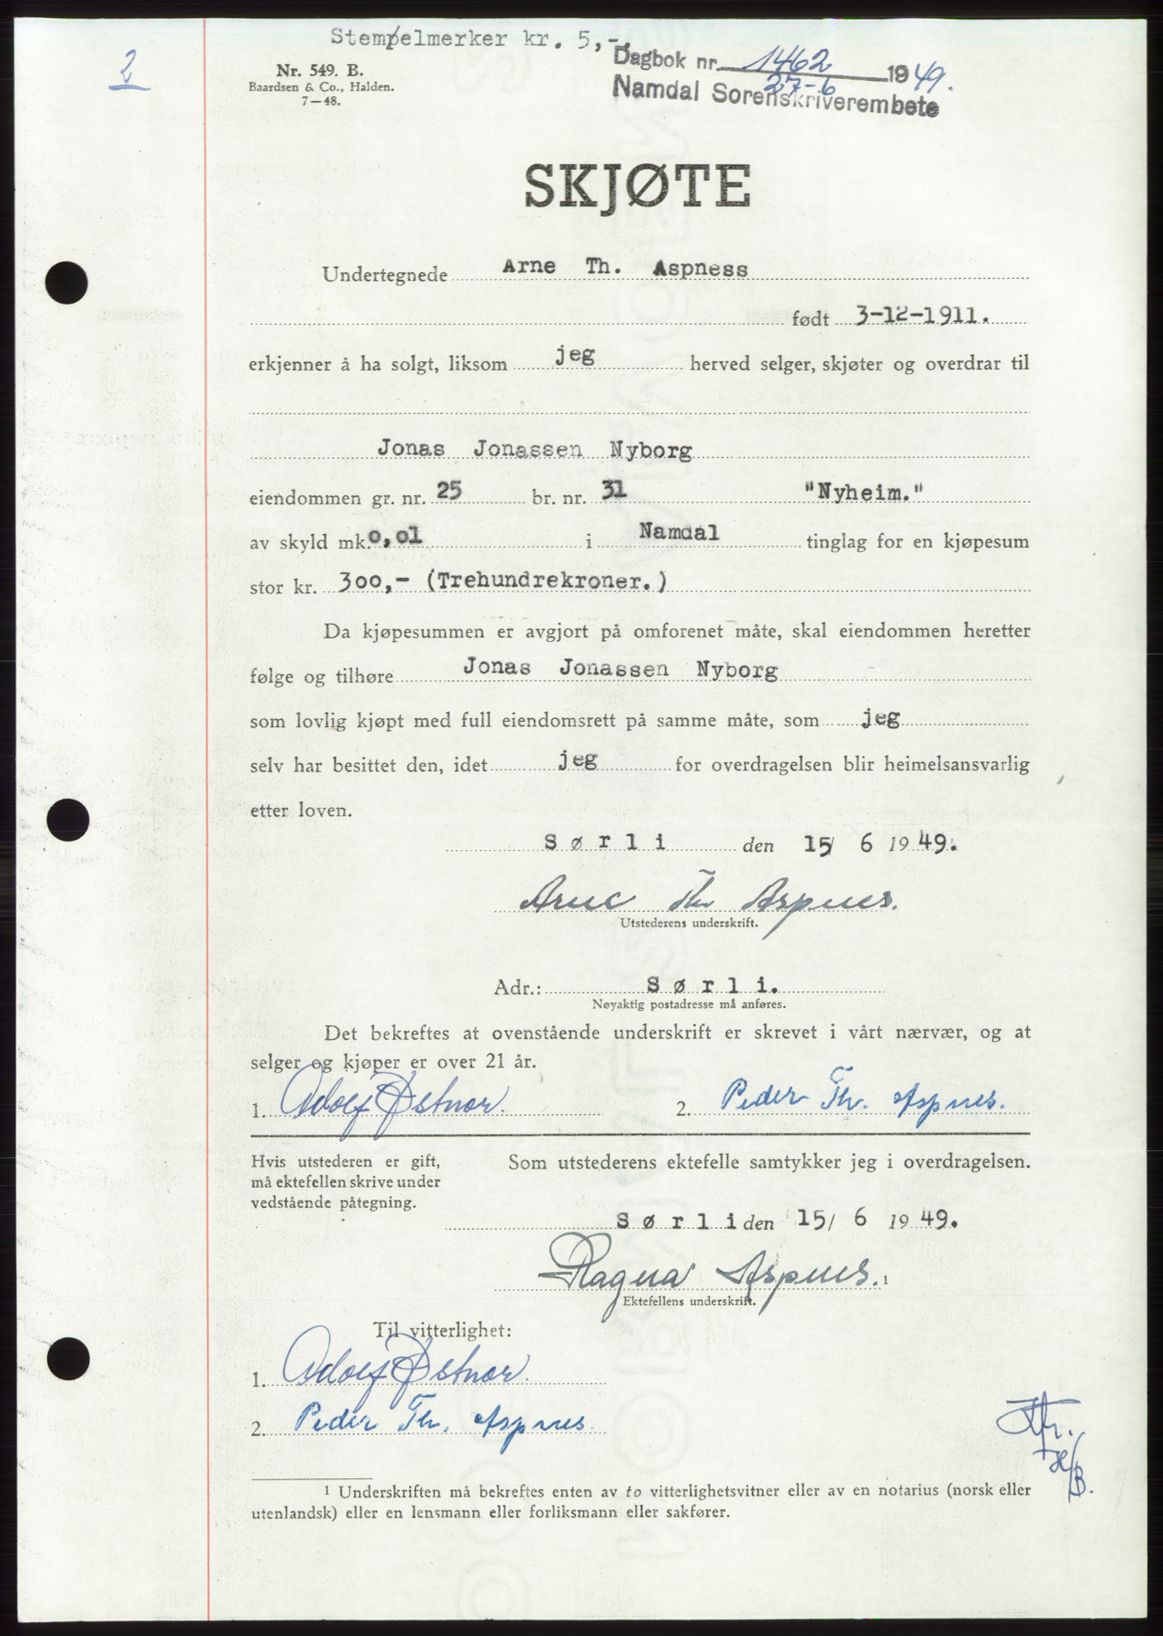 Stempelmerker kr. 5,-.
2
Nr. 549. B.
Baardsen & Co., Halden.
7—48.
Dagbok nr. 1462 1949.
27-6
Namdal Sorenskriverembete
SKJØTE
Undertegnede Arne Th. Aspness
født 3-12-1911.
erkjenner å ha solgt, liksom jeg herved selger, skjøter og overdrar til
Jonas Jonassen Nyborg
eiendommen gr. nr. 25 br. nr. 31 "Nyheim."
av skyld mk. 0,01 i Namdal tinglag for en kjøpesum
stor kr. 300,- (Trehundrekroner.)
Da kjøpesummen er avgjort på omforenet måte, skal eiendommen heretter
følge og tilhøre Jonas Jonassen Nyborg
som lovlig kjøpt med full eiendomsrett på samme måte, som jeg
selv har besittet den, idet jeg for overdragelsen blir heimelsansvarlig
etter loven.
Sørli den 15/ 6 1949.
Arne Th Aspnes.
Utstederens underskrift.
Adr.: Sørli.
Nøyaktig postadresse må anføres.
Det bekreftes at ovenstående underskrift er skrevet i vårt nærvær, og at
selger og kjøper er over 21 år.
1. Adolf Østnor. 2. Peder Th. Aspnes.
Hvis utstederen er gift,
må ektefellen skrive under
vedstående påtegning.
Som utstederens ektefelle samtykker jeg i overdragelsen.
Sørli den 15/ 6 1949.
Ragna Aspnes. 1
Ektefellens underskrift.
Til vitterlighet:
1. Adolf Østnor.
2. Peder Th. Aspnes.
1 Underskriften må bekreftes enten av to vitterlighetsvitner eller av en notarius (norsk eller
utenlandsk) eller en lensmann eller forliksmann eller sakfører.